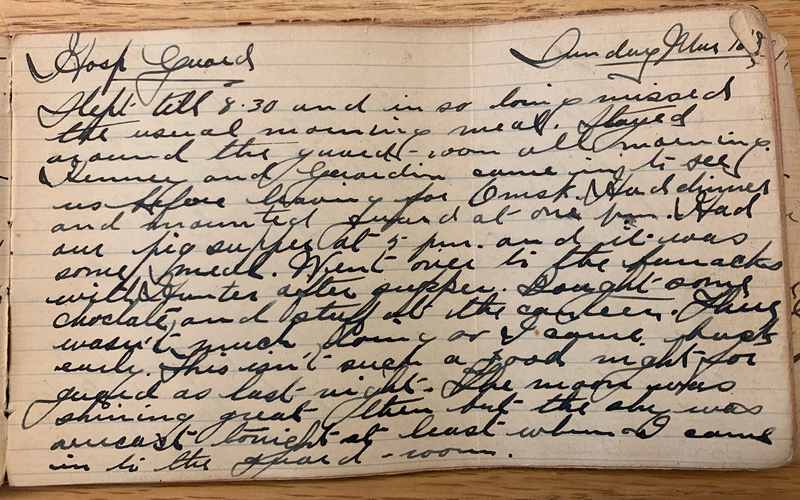 Hosp Guard Sunday Mar 16
Slept till 8.30 and in so doing missed
the usual morning meal. Stayed
around the guard-room all morning.
Kenner and Gerardin came in to see
us before leaving for Omsk. Had dinner
and mounted guard at one pm. Had
our pig supper at 5 pm. and it was
some meal. Went over to the barracks
with Hunter after supper. Bought some
choclate, and stuff at the canteen. There
wasn't much doing so I came back
early. This isn't such a good night for
guard as last night. The moon was
shining great then but the sky was
overcast tonight at least when I came
in to the guard-room.